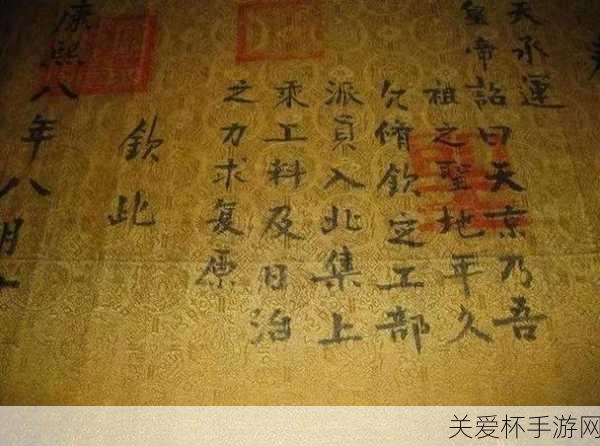 天承運
皇帝詔曰天京乃吾
祖之聖地年久
欠脩欽定工部
派員入北集上
乘工料及日治
之力求复原
欽此
康熙八年八
关爱杯手游网